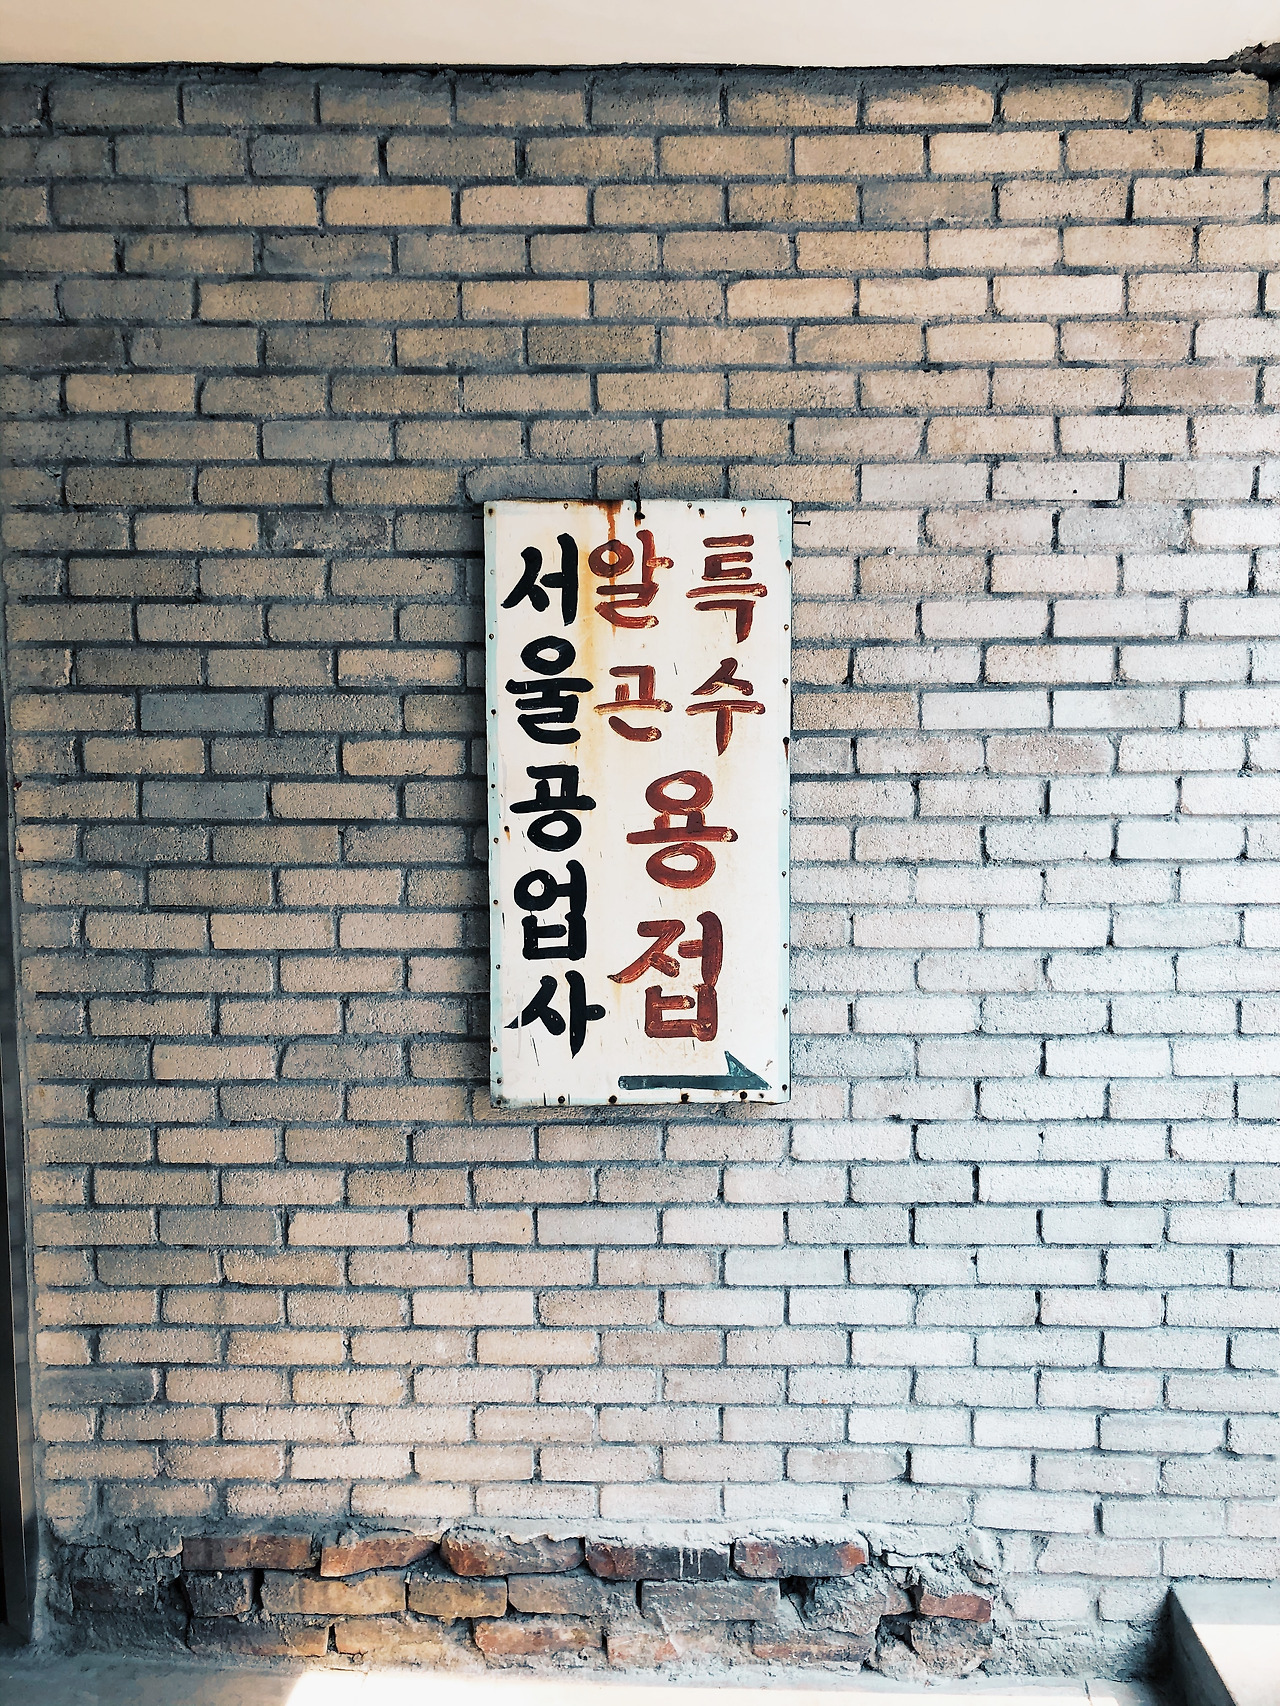 특수
알곤
용접
서울공업사